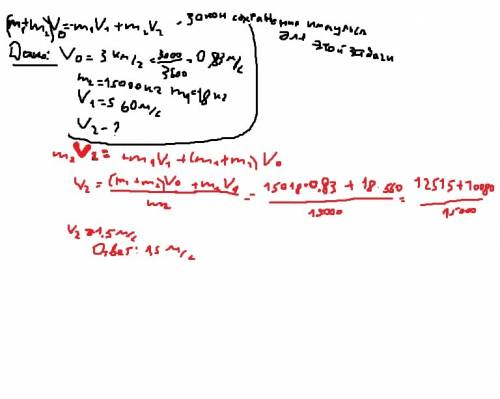 (m₁+m₂)V₀=m₁V₁+m₂V₂ - закон сохранения импульса
для этой задачи
Дано: V₀ = 3 км/ч = 3000/3600 = 0,83 м/с
m₂=15000кг m₁=18кг
V₁=560м/с
V₂-?
m₂V₂= m₁V₁+(m₁+m₂)V₀
V₂ = (m₁+m₂)V₀ + m₁V₁ / m₂ = 15018·0,83 + 18·560 / 15000 = 12515+10080 / 15000
V₂≈1,5 м/с
Ответ: 1,5 м/с